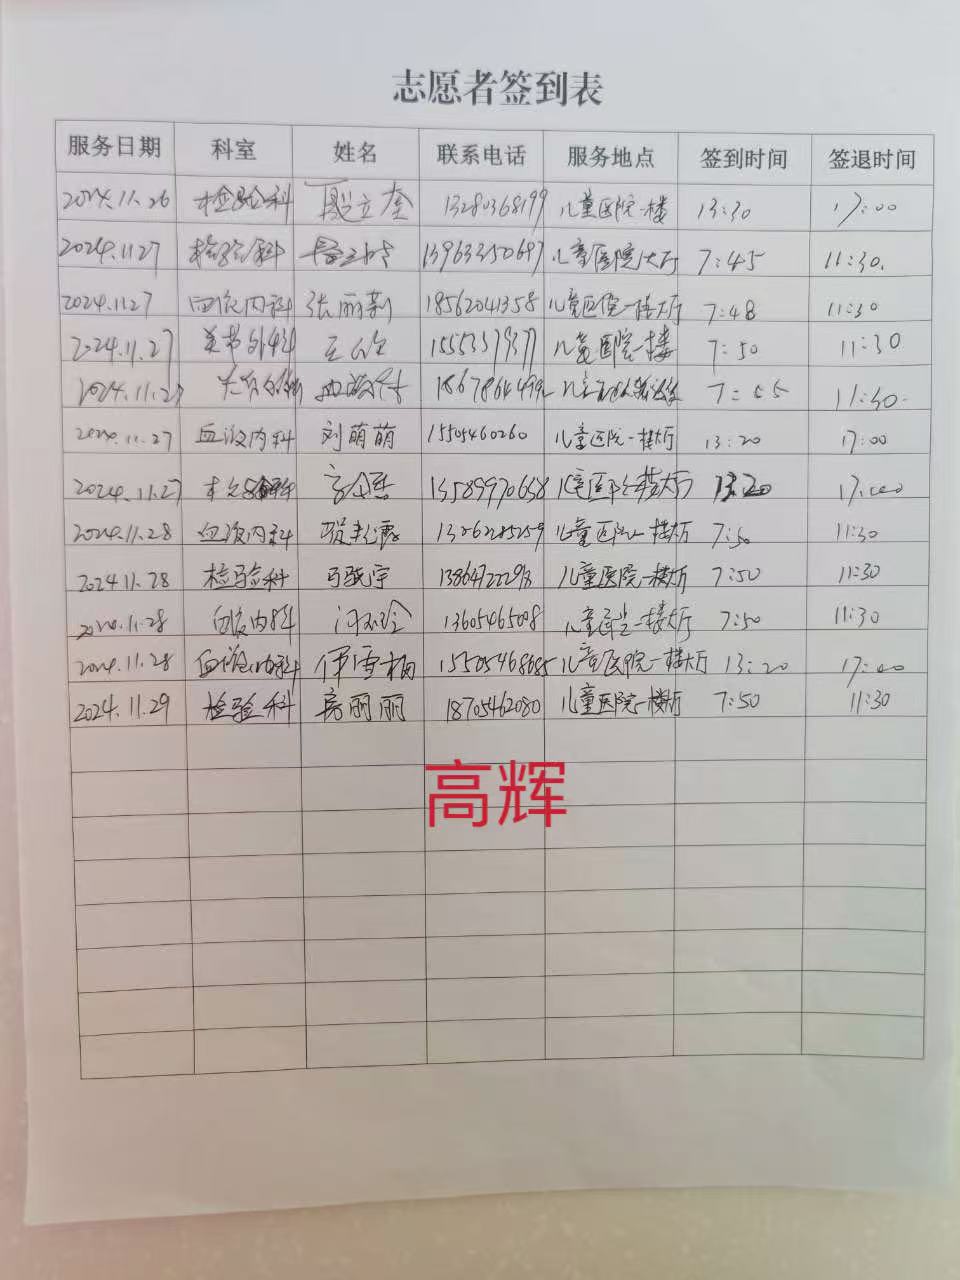 志愿者签到表
服务日期 科室 姓名 联系电话 服务地点 签到时间 签退时间
2024.11.26 检验科 立奎 13280368199 儿童医院一楼 13:30 17:00
2024.11.27 检验科 13963350697 儿童医院大厅 7:45 11:30.
2024.11.27 血液内科 张丽莉 18562041358 儿童医院一楼大厅 7:48 11:30
2024.11.27 关节外科 儿童医院一楼 7:50 11:30
2024.11.27 7:55 11:30.
2024.11.27 血液内科 刘萌萌 15505460260 儿童医院一楼大厅 13:20 17:00
2024.11.27 13589970658 13:20 17:00
2024.11.28 血液内科 儿童医院一楼大厅 7:50 11:30
2024.11.28 检验科 儿童医院一楼大厅 7:50 11:30
2024.11.28 血液内科 13605465008 儿童医院一楼大厅 7:50 11:30
2024.11.28 血液内科 伊雪梅 15505468685 儿童医院一楼大厅 13:20 17:00
2024.11.29 检验科 房丽丽 18705462080 儿童医院一楼大厅 7:50 11:30
高辉